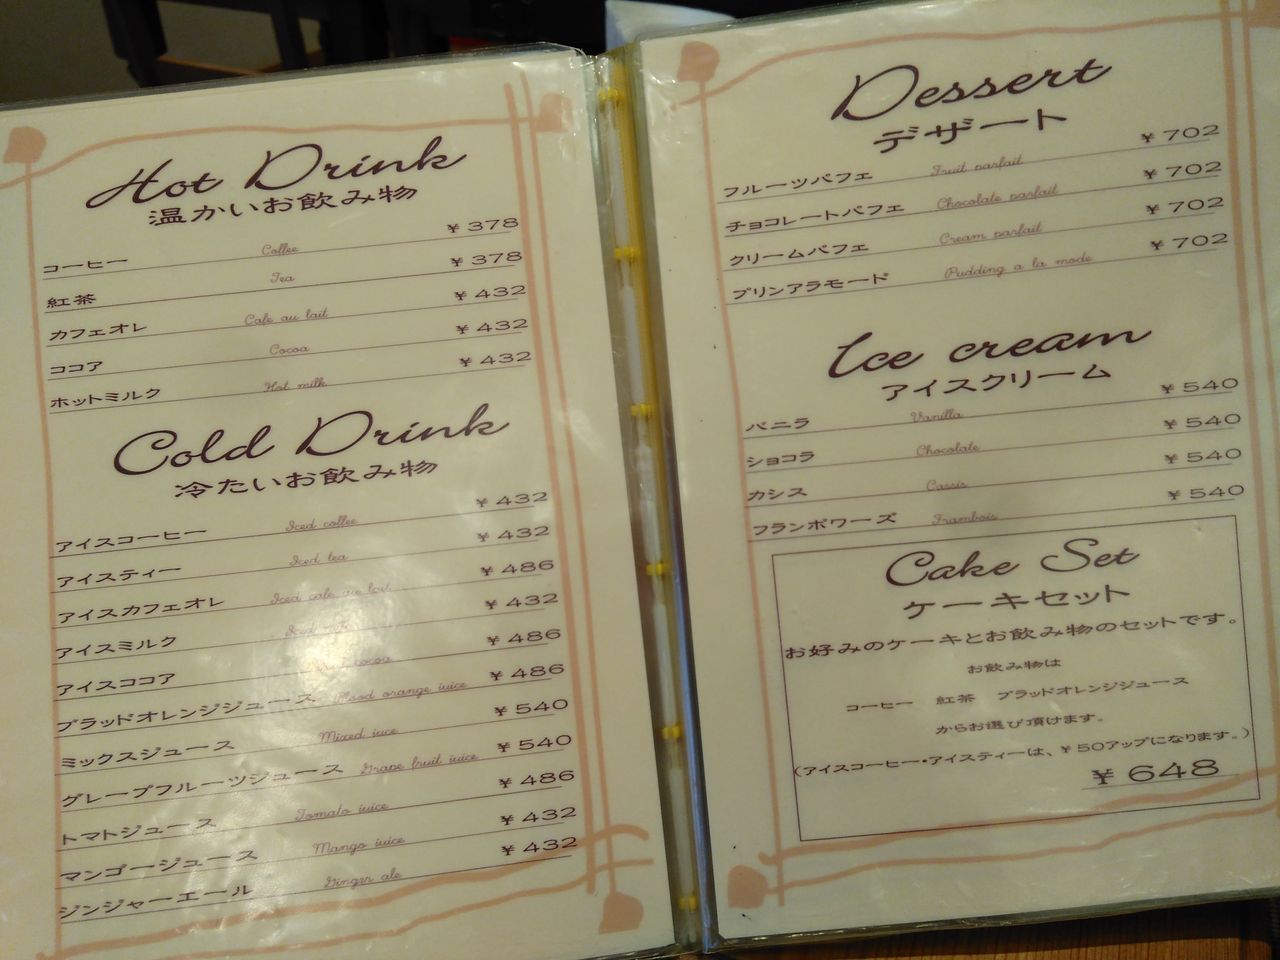 Hot Drink
温かいお飲み物
コーヒー Coffee ¥378
紅茶 Tea ¥378
カフェオレ Cafe au lait ¥432
ココア Cocoa ¥432
ホットミルク Hot milk ¥432
Cold Drink
冷たいお飲み物
アイスコーヒー Iced coffee ¥432
アイスティー Iced tea ¥432
アイスカフェオレ Iced cafe au lait ¥486
アイスミルク Iced ¥432
アイスココア cocoa ¥486
ブラッドオレンジジュース Blood orange juice ¥486
ミックスジュース Mixed juce ¥540
グレープフルーツジュース Grape fruit juice ¥540
トマトジュース Tomato juice ¥486
マンゴージュース Mango juice ¥432
ジンジャーエール Ginger ale ¥432
Dessert
デザート
フルーツパフェ Fruit parfait ¥702
チョコレートパフェ Chocolate parfait ¥702
クリームパフェ Cream parfait ¥702
プリンアラモード Pudding a la mode ¥702
Ice cream
アイスクリーム
バニラ Vanilla ¥540
ショコラ Chocolate ¥540
カシス Cassis ¥540
フランボワーズ Frambois ¥540
Cake Set
ケーキセット
お好みのケーキとお飲み物のセットです。
お飲み物は
コーヒー 紅茶 ブラッドオレンジジュース
からお選び頂けます。
(アイスコーヒー・アイスティーは、¥50アップになります。)
¥648